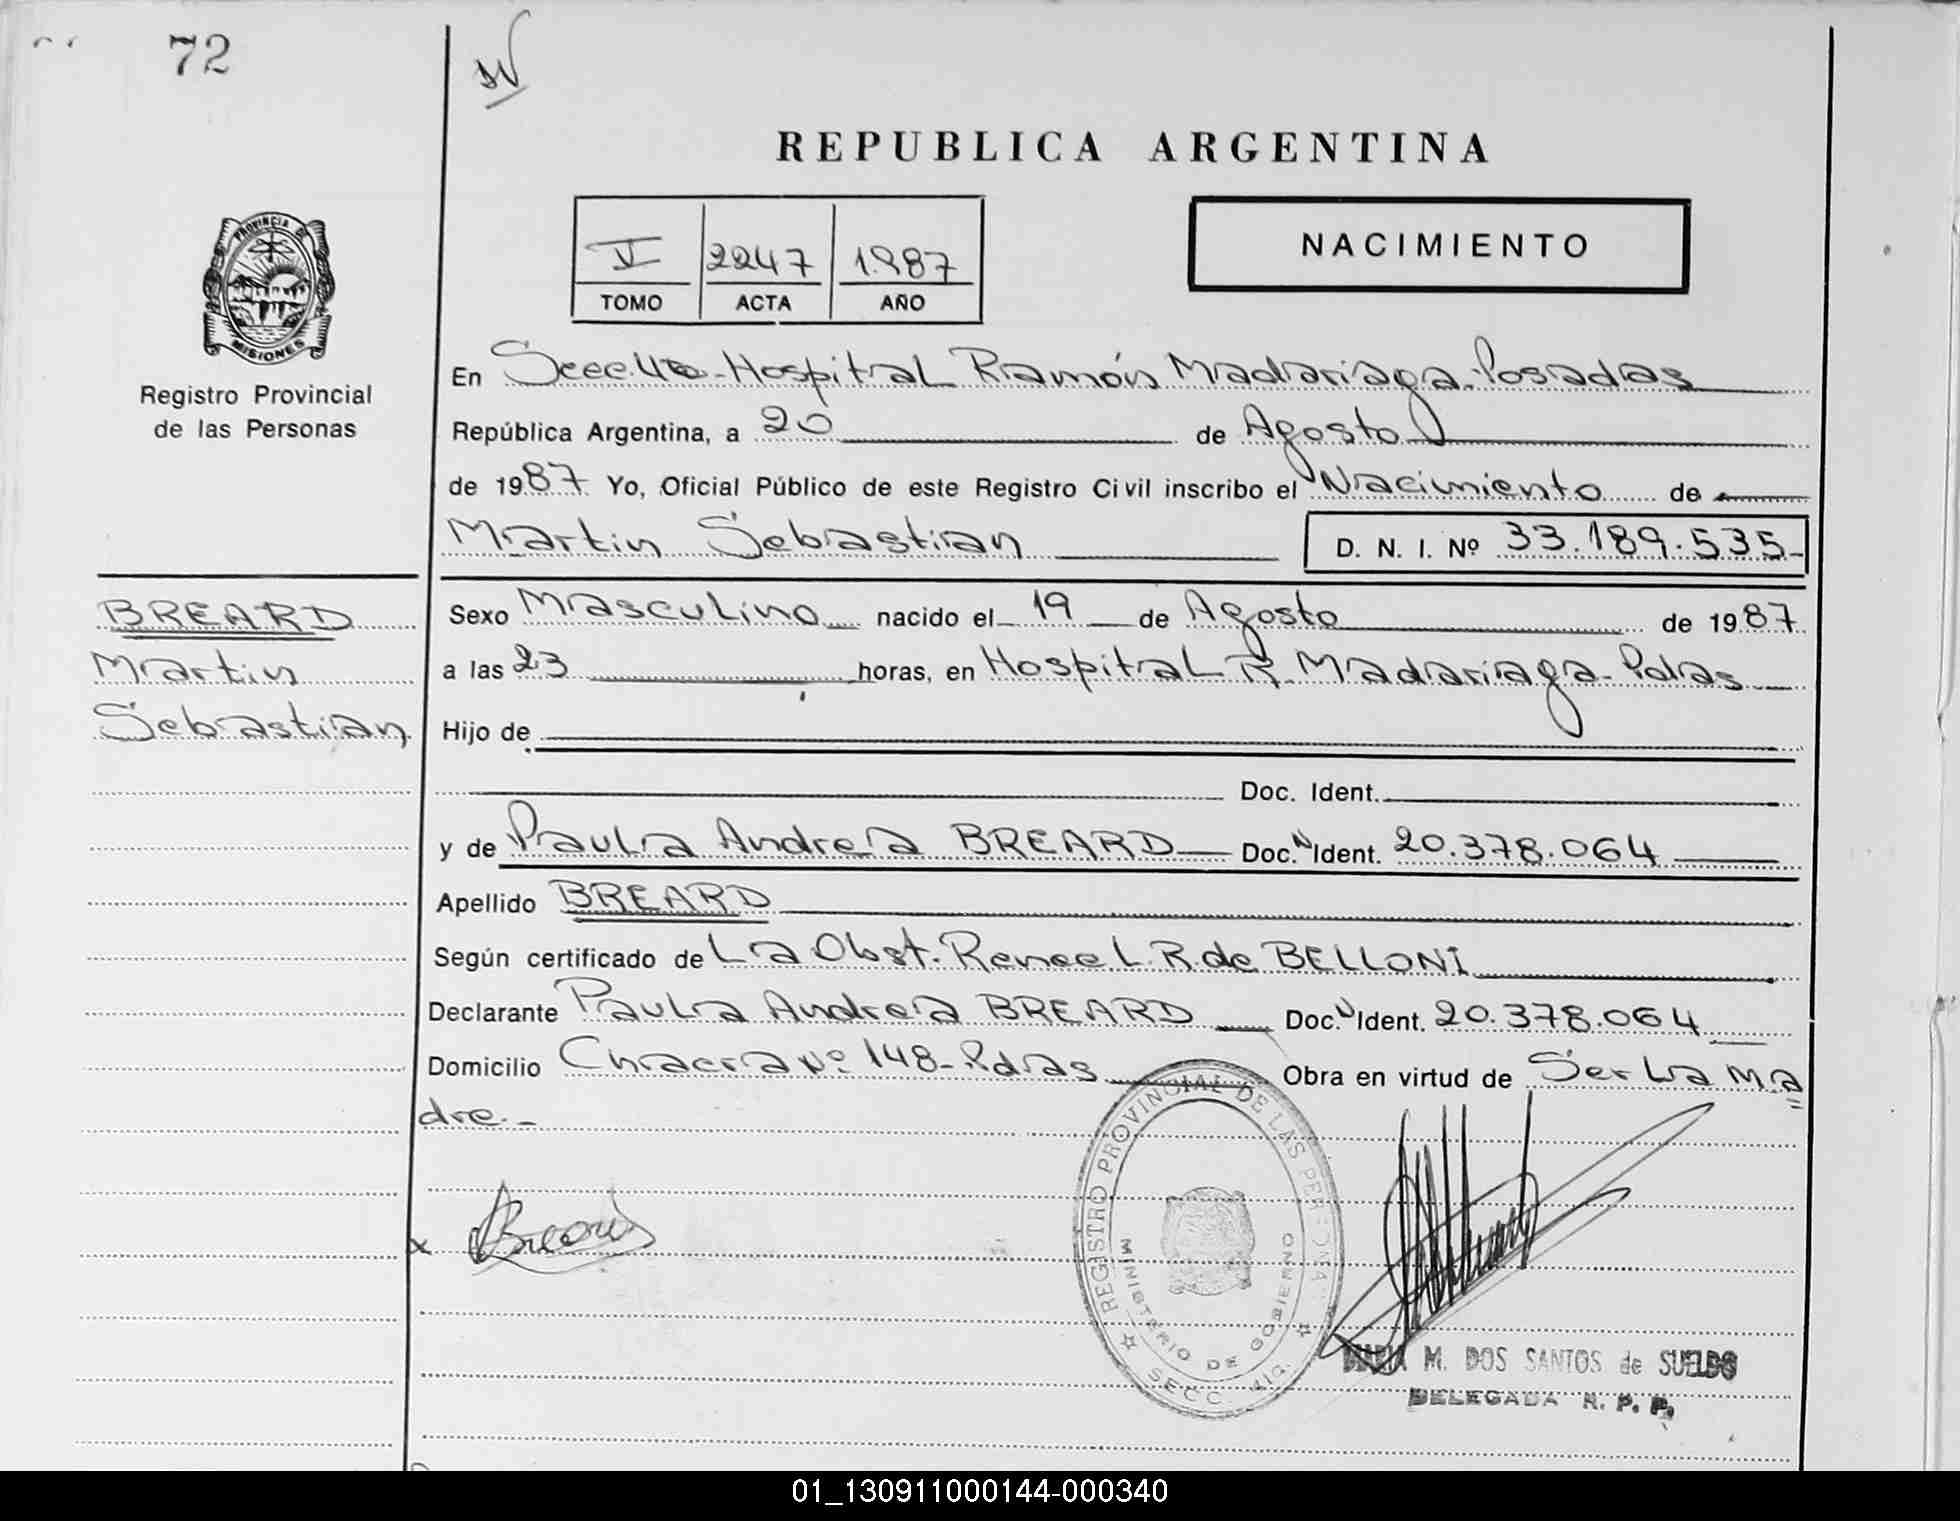 72
REPUBLICA ARGENTINA
V 2247 1987
TOMO ACTA AÑO
NACIMIENTO
PROVINCIA DE
MISIONES
Registro Provincial
de las Personas
En Secc. 4ta - Hospital Ramón Madariaga - Posadas
República Argentina, a 20 de Agosto
de 1987 Yo, Oficial Público de este Registro Civil inscribo el Nacimiento de
Martin Sebastian D. N. I. Nº 33.189.535-
BREARD
Martin
Sebastian
Sexo Masculino nacido el 19 de Agosto de 1987
a las 23 horas, en Hospital R. Madariaga - Pdas
Hijo de
Doc. Ident.
y de Paula Andrea BREARD Doc. N Ident. 20.378.064
Apellido BREARD
Según certificado de La Obst. Renee L. R. de BELLONI
Declarante Paula Andrea BREARD Doc. N Ident. 20.378.064
Domicilio Chacra Nº 148 - Pdas Obra en virtud de Ser La Ma
dre.-
x Breard
REGISTRO PROVINCIAL DE LAS PERSONAS
MINISTERIO DE GOBIERNO
SECC.
MARIA M. DOS SANTOS de SUELDO
DELEGADA R. P. P.
01_130911000144-000340